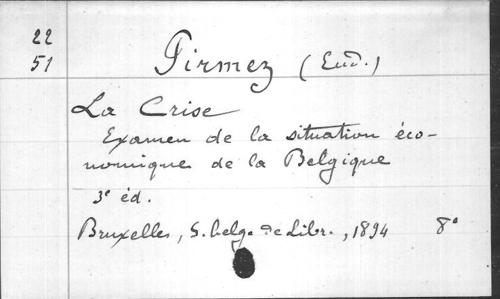 22
51
Pirmez (Eud.)
La Crise
Examen de la situation éco-
nomique de la Belgique
3e éd.
Bruxelles, S. belge de Libr., 1894 8°